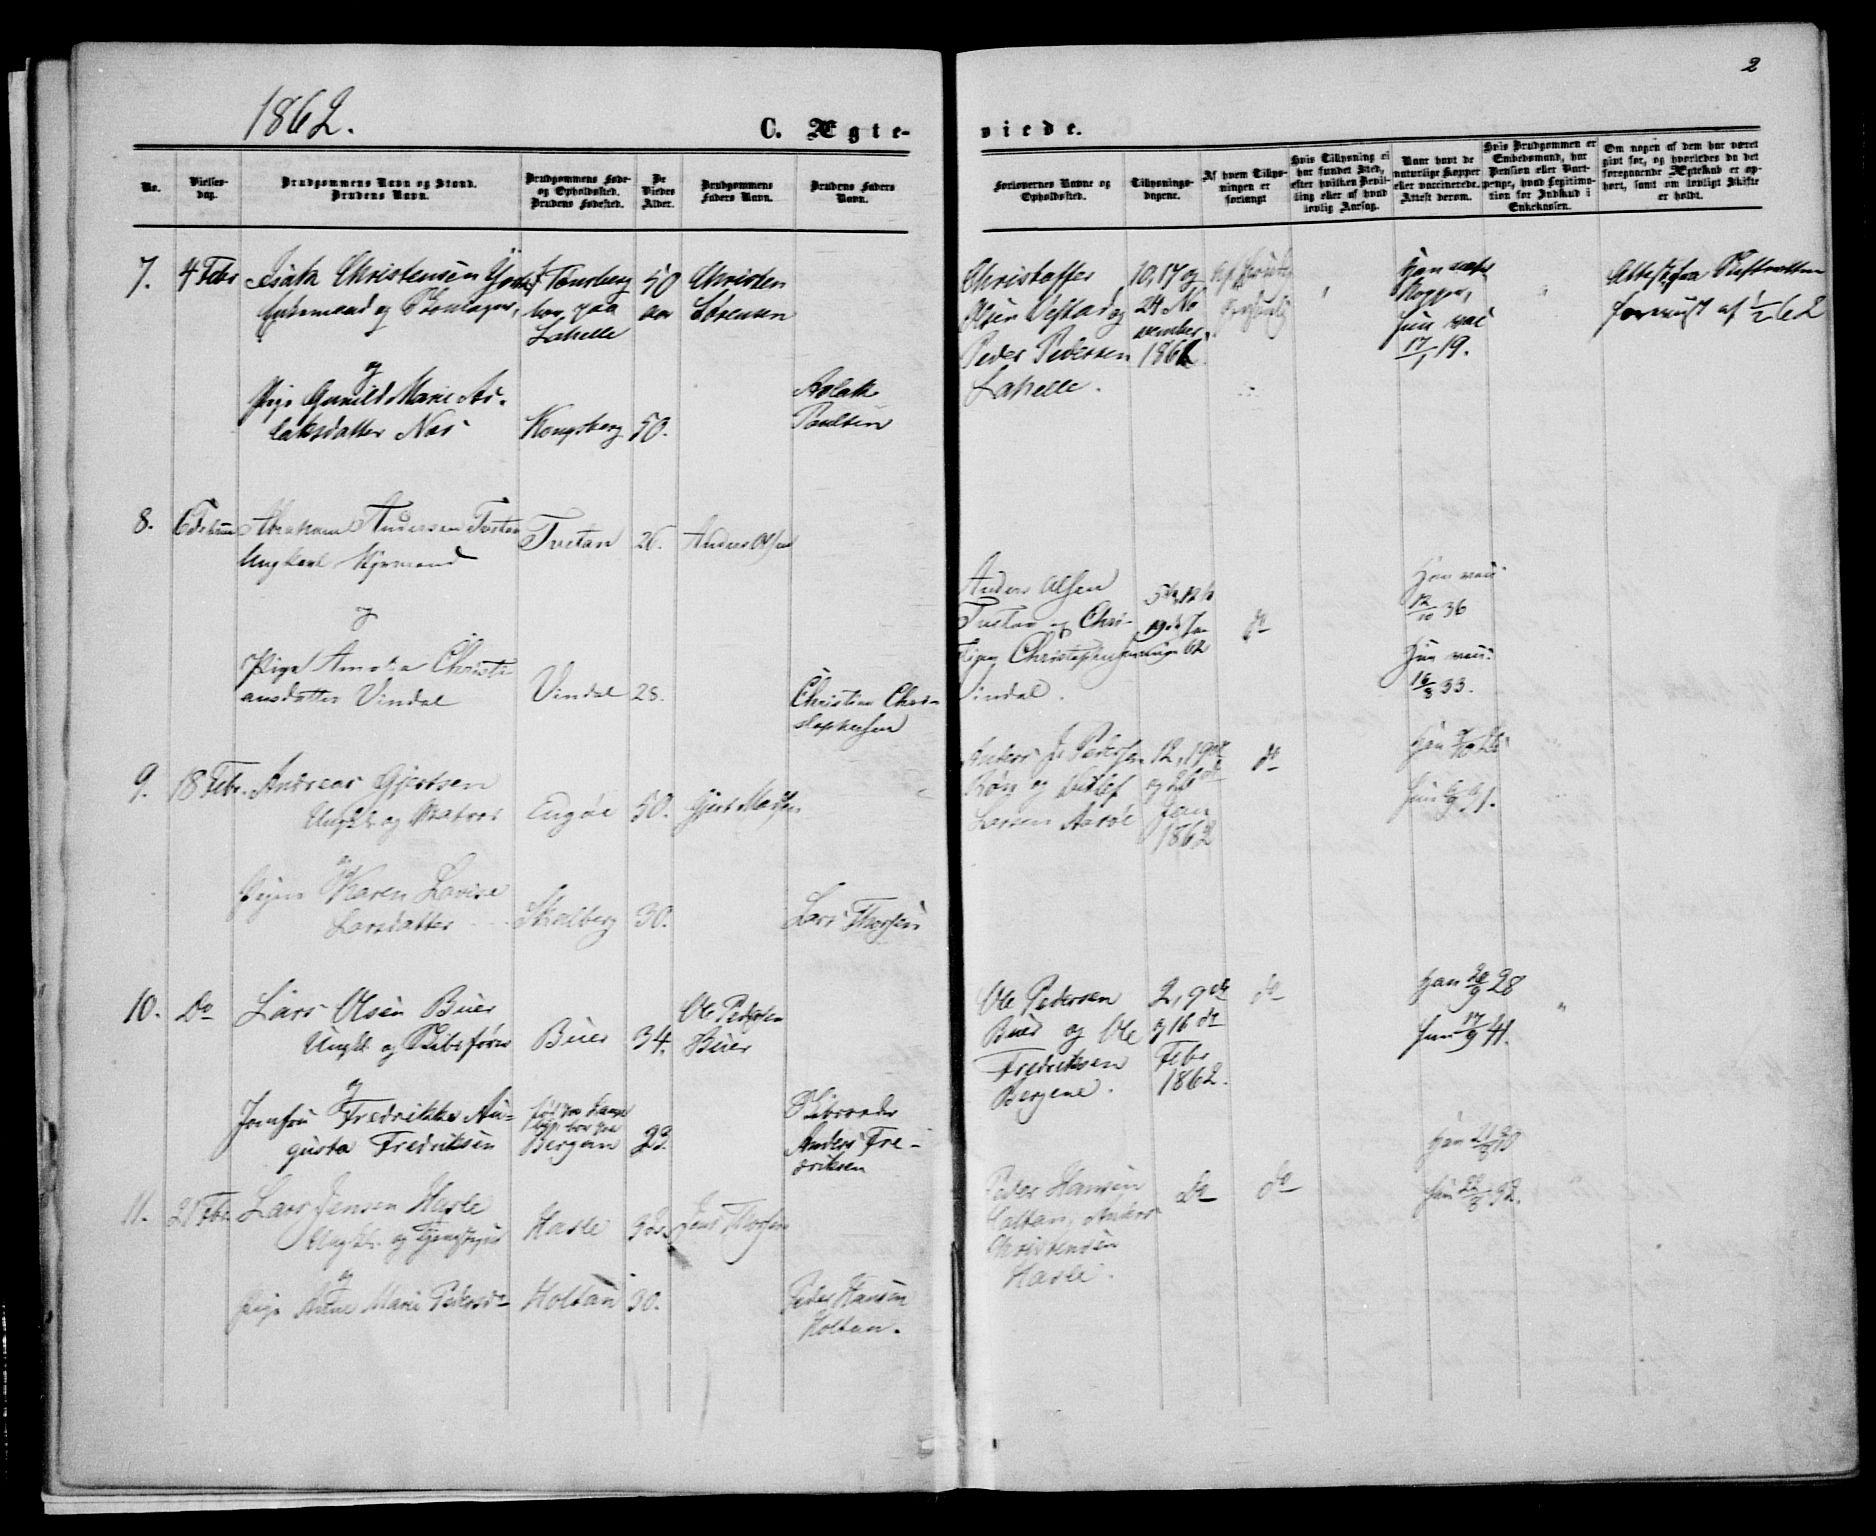 2
1862.
C. Ægte-
viede.
No.
Vielses-
dag.
Brudgommens Navn og Stand.
Brudens Navn.
Brudgommens Føde-
og Opholdssted.
Brudens Fødested.
De
Viedes
Alder.
Brudgommens
Faders Navn.
Brudens Faders
Navn.
Forlovernes Navne og
Opholdssted.
Tillysnings-
dagene.
Af hvem Tillys-
ningen er
forlangt
Hvis Tillysning ei
har fundet Sted,
efter hvilken Bevil-
ling eller af hvad
lovlig Aarsag.
Naar havt de
naturlige Kopper
eller vaccinerede.
Attest derom.
Hvis Brudgommen er
Embedsmand, har
Pension eller Vart-
penge, hvad Legitima-
tion for Indskud i
Enkekassen.
Om nogen af dem har været
gift før, og hvorledes da det
foregaaende Ægteskab er op-
hørt, samt om lovligt Skifte
er holdt.
7.
4 Febr
Isak Christensen
Enkemand og
og
Pige Gunild Marie As-
laksdatter Næs
f Tønsberg
bor paa
Lahelle
Kongsberg
50
aar
50.
Christen
Sørensen
Aslak
Poulsen
Christoffer
Olsen og
Peder Pedersen
Lahelle.
10, 17 og
24 No
vember
1861
Han nat.
Kopper,
Hun vac
17/1 19.
Attest fra Skifteretten
af 1/2 62
8.
6 Februar
Abraham Andersen Tvetan
Ungkarl
og
Pige Amalia Christi
ansdatter Vindal
Tvetan
Vindal
26.
28.
Anders Olsen
Christian Chri-
stophersen
Anders Olsen
Tvetan og Chri-
Christophersen
Vindal.
5te, 12te
19de Ja
nuar 62
do
Han vac:
12/10 36
Hun vac:
16/8 33.
9.
18 Febr.
Andreas Gjertsen
Ungk. og Matros
og
Pigen Karen Lovise
Larsdatter
Engøe
Skalberg
50.
30.
Gjert Madsen
Lars Thorsen
Anders Pedersen
og Detlef
Larsen Aarøe
12, 19de
og 26de
Jan
1862
do
Han
Hun
10.
Do
Lars Olsen Buer
Ungk. og Skibsfører
og
Jomfru Fredrikke Au-
gusta Fredriksen
Buer
Bergan
34.
23.
Ole Pedersen
Buer
Skibsreder
Anders Fre-
driksen
Ole Pedersen
Buer og Ole
Fredriksen
Bergene.
2, 9de
og 16de
Febr
1862.
do
Han 20/9 28
Hun 17/9 41.
11.
21 Febr
Lars Jensen Hasle
Ungk. og
og
Pige Anne Marie Pedersdr
Hasle
Holtan
30.
Jens Thorsen
Peder Hansen
Holtan.
Peder Hansen
Holtan, Anders
Christensen
Hasle.
Do
do
Han
Hun